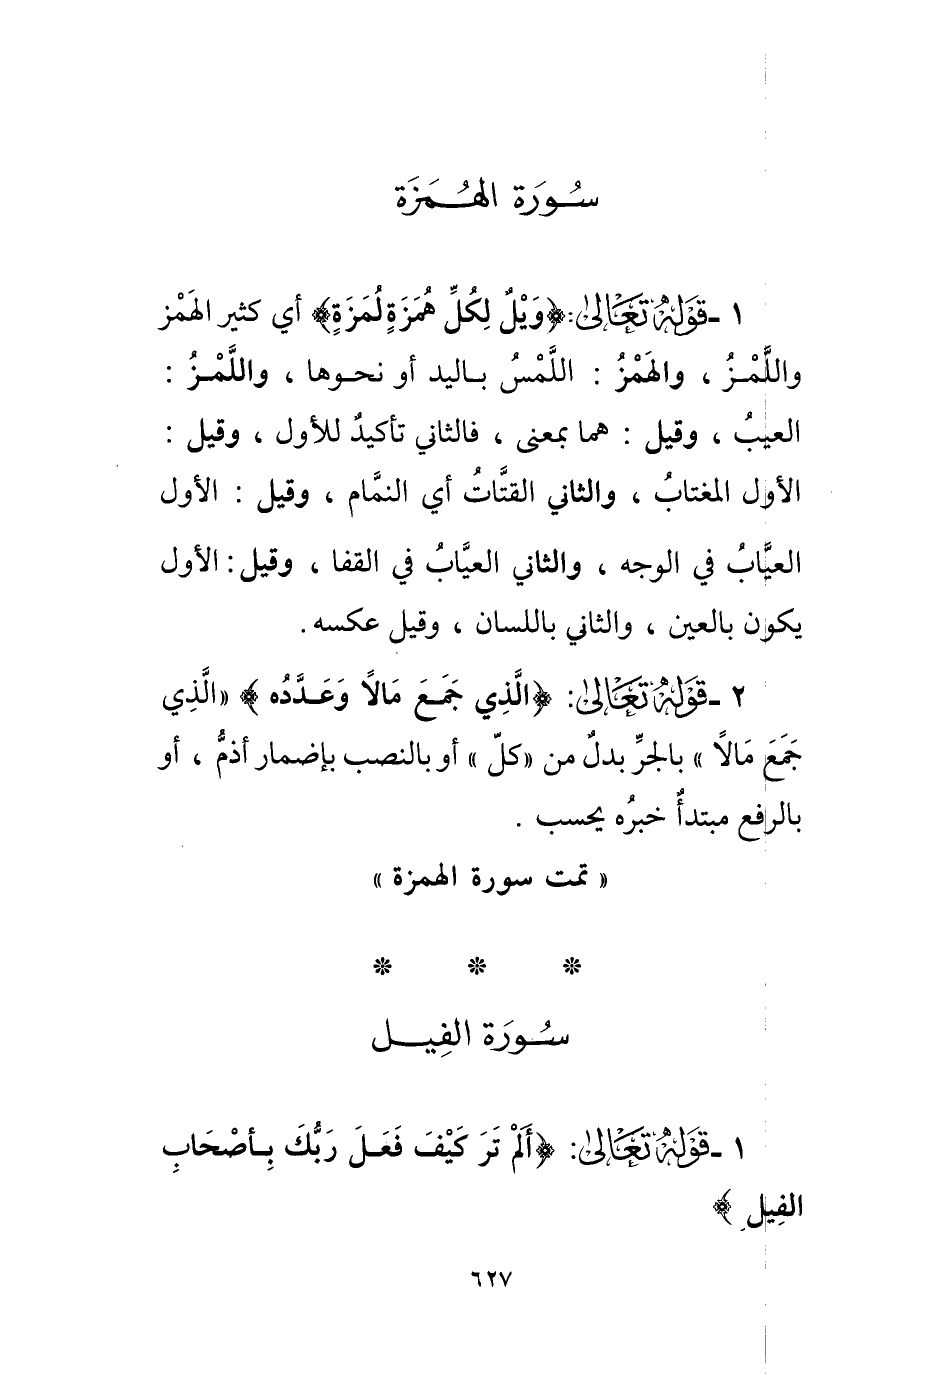 سُورَة الهُمَزَة
١ ـ قَوْلُهُ تَعَالَىٰ: ﴿وَيْلٌ لِكُلِّ هُمَزَةٍ لُمَزَةٍ﴾ أي كثير الهَمْز
واللَّمْزُ ، والهَمْزُ : اللَّمْسُ باليد أو نحوها ، واللَّمْزُ :
العيبُ ، وقيل : هما بمعنى ، فالثاني تأكيدٌ للأول ، وقيل :
الأول المغتابُ ، والثاني القتَّاتُ أي النمَّام ، وقيل : الأول
العيَّابُ في الوجه ، والثاني العيَّابُ في القفا ، وقيل: الأول
يكون بالعين ، والثاني باللسان ، وقيل عكسه .
٢ ـ قَوْلُهُ تَعَالَىٰ: ﴿الَّذِي جَمَعَ مَالاً وَعَدَّدُه ﴾ «الَّذِي
جَمَعَ مَالاً » بالجرِّ بدلٌ من «كلّ » أو بالنصب بإضمار أذمُّ ، أو
بالرفع مبتدأٌ خبرُه يحسب .
« تمت سورة الهمزة »
سُورَة الفِيل
١ ـ قَوْلُهُ تَعَالَىٰ: ﴿أَلَمْ تَرَ كَيْفَ فَعَلَ رَبُّكَ بِأصْحَابِ
الفِيلِ ﴾
٦٢٧